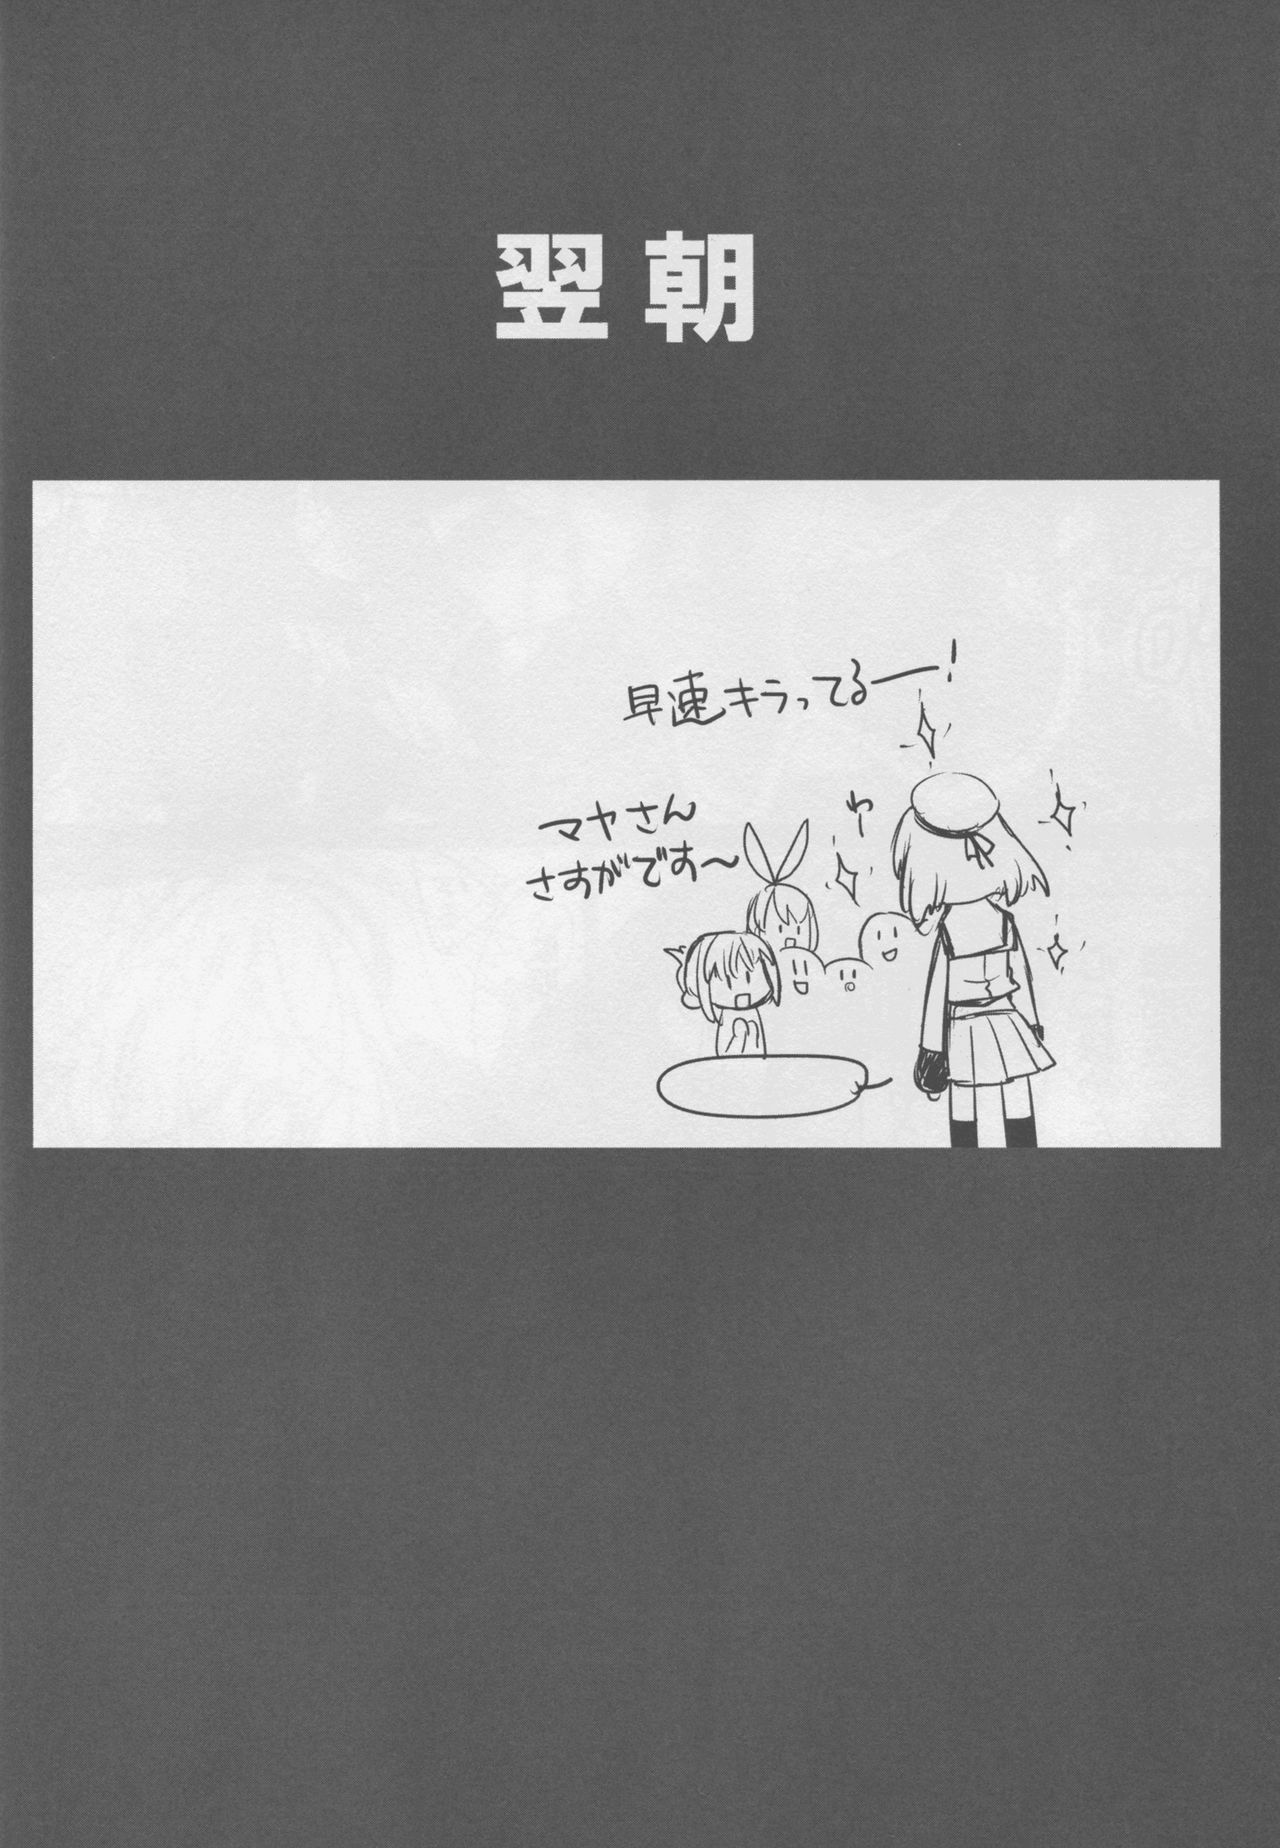 翌朝
早速キラってるー！
わー
マヤさん
さすがです〜